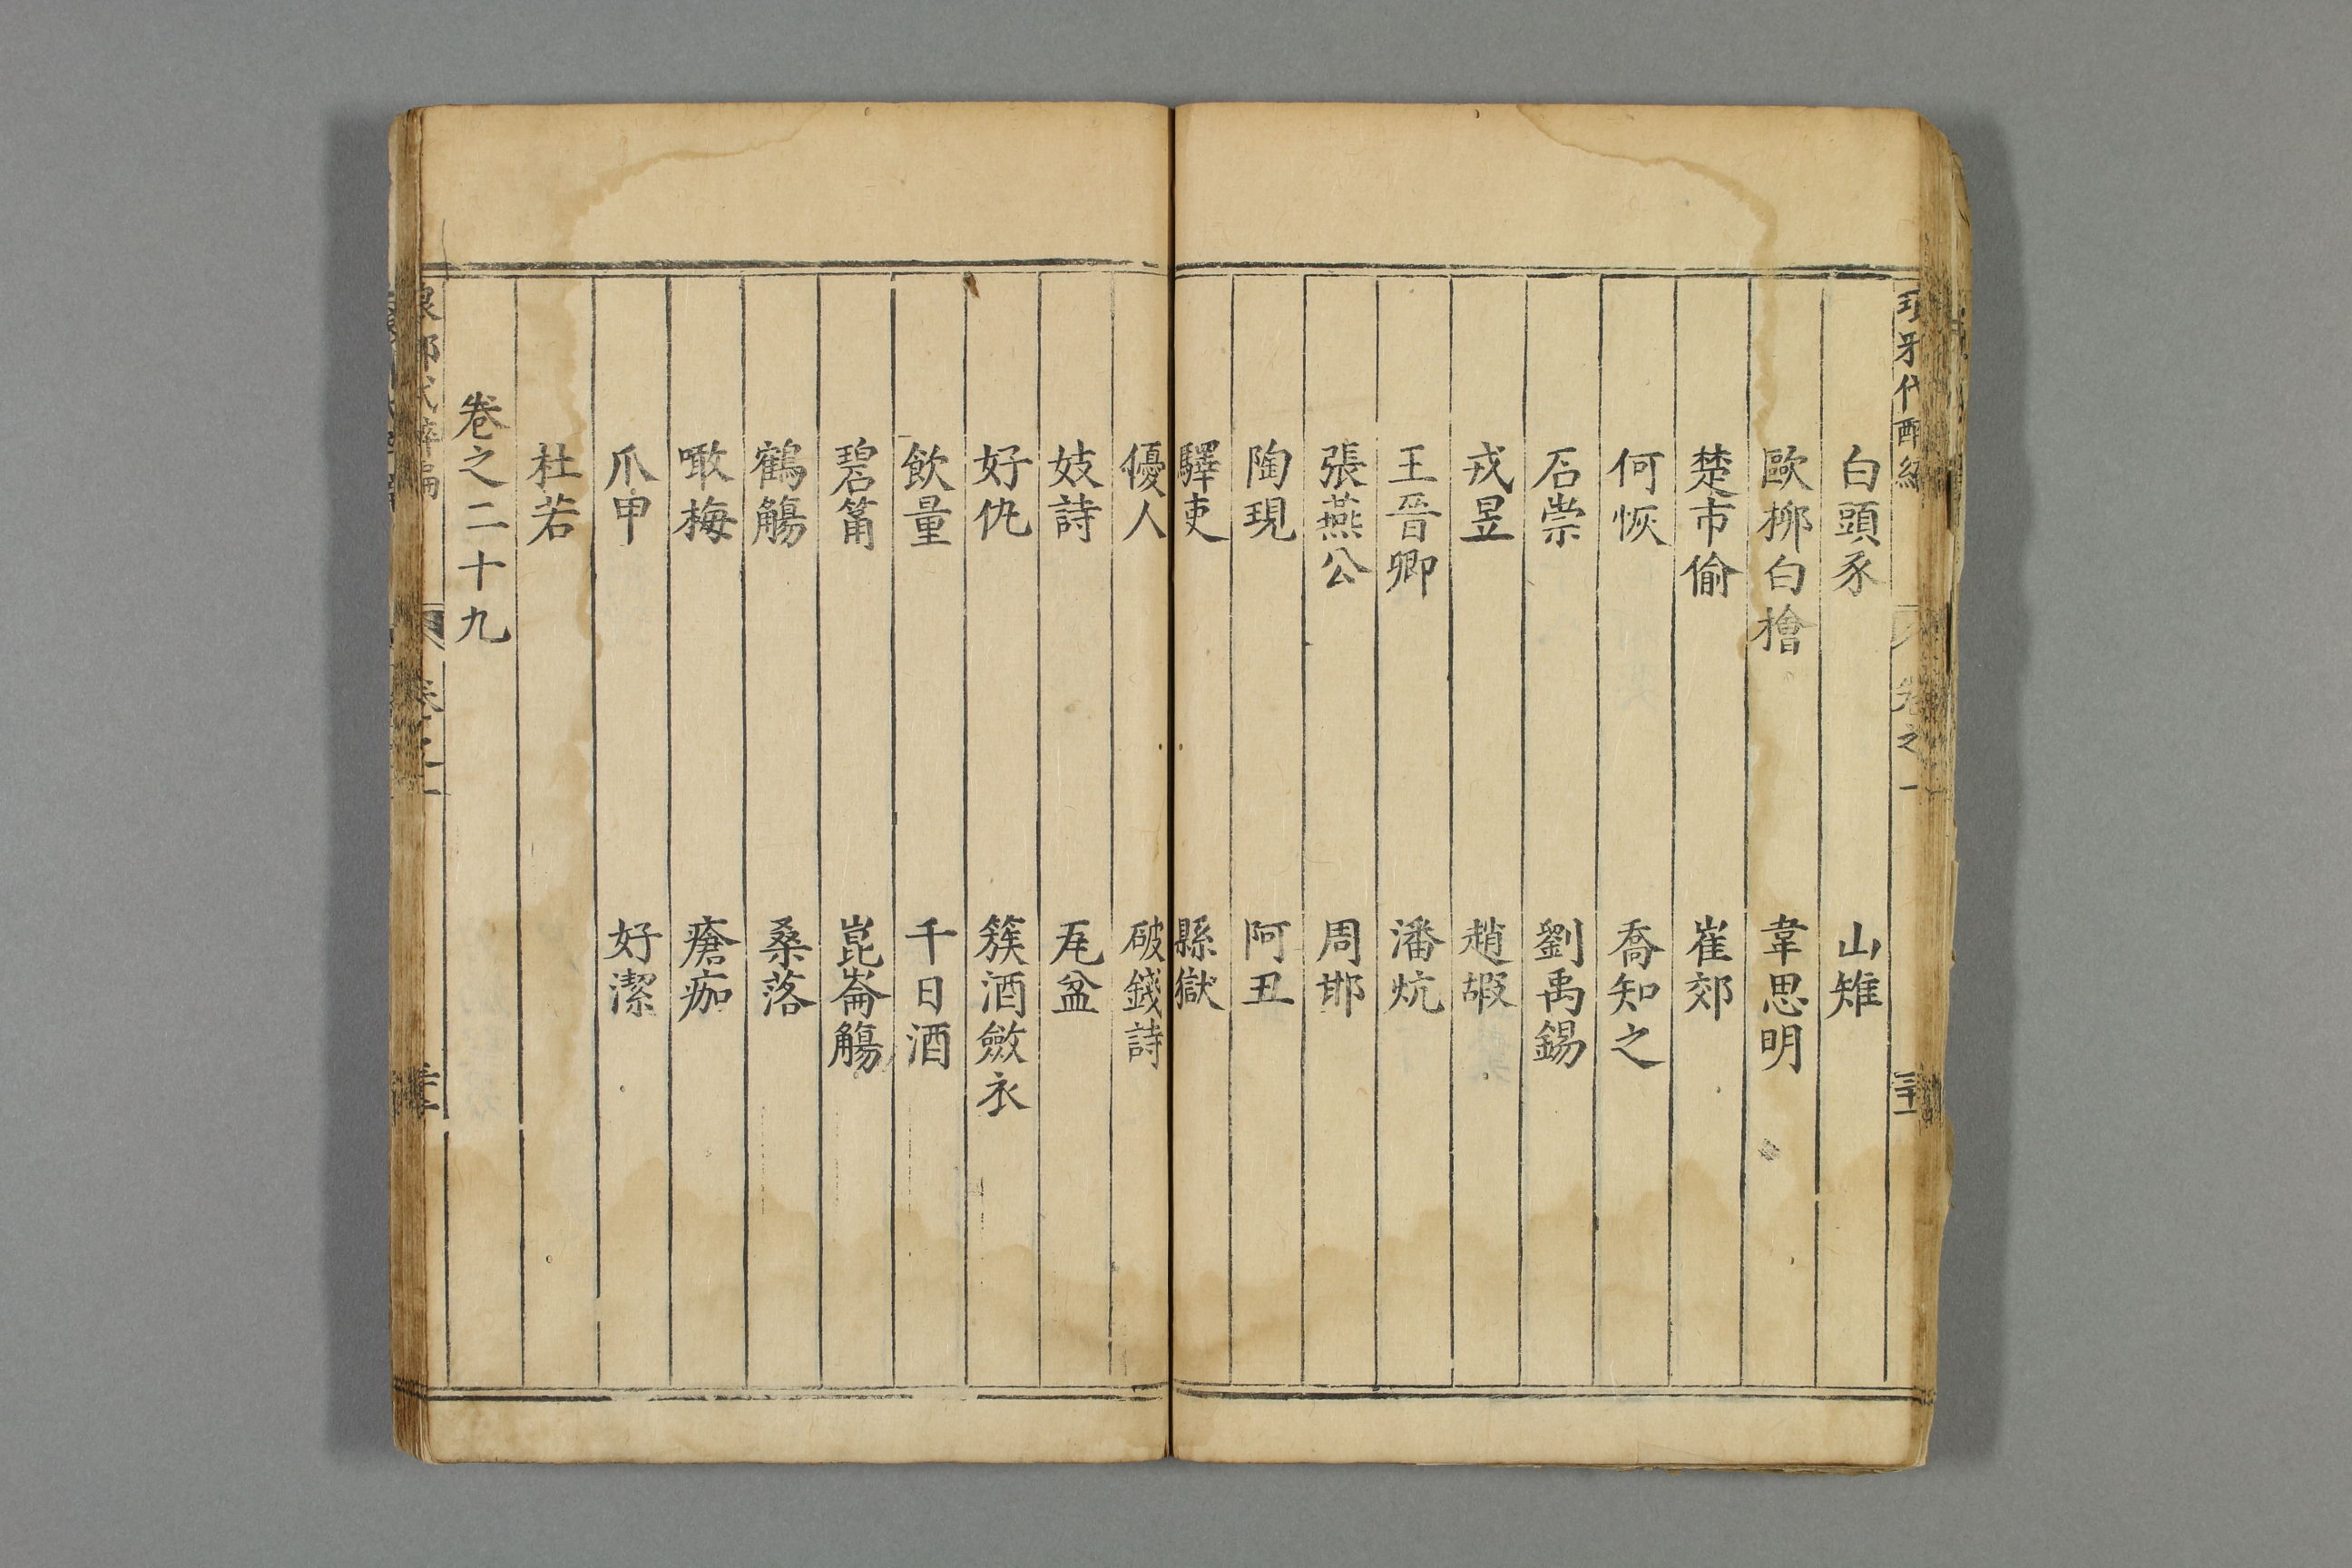 白頭豕 山雉
歐柳白檜 韋思明
楚市偷 崔郊
何恢 喬知之
石崇 劉禹錫
戎昱 趙嘏
王晉卿 潘炕
張燕公 周邯
陶現 阿丑
驛吏 縣獄
優人 破錢詩
妓詩 瓦盆
好仇 簇酒斂衣
飲量 千日酒
碧筩 崑崙觴
鶴觴 桑落
噉梅 瘡痂
爪甲 好潔
杜若
卷之二十九